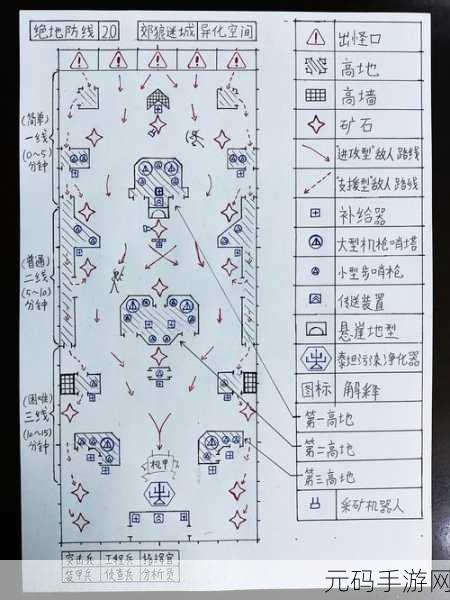 绝地防线 2.0
郊狼迷城 异化空间
(简单)
一线
(0~5)
分钟
(普通)
二线
(5~10)
分钟
(困难)
三线
(10~15)
分钟
机甲
突击兵 工程兵 指挥官
装甲兵 侦查兵 分析员
出怪口
高地
高墙
矿石
"进攻型"敌人路线
"支援型"敌人路线
补给器
大型机枪哨塔
小型自哨枪
传送装置
悬崖地型
泰坦污染净化器
图标 解释
第一高地
第二高地
第三高地
采矿机器人
元码手游网